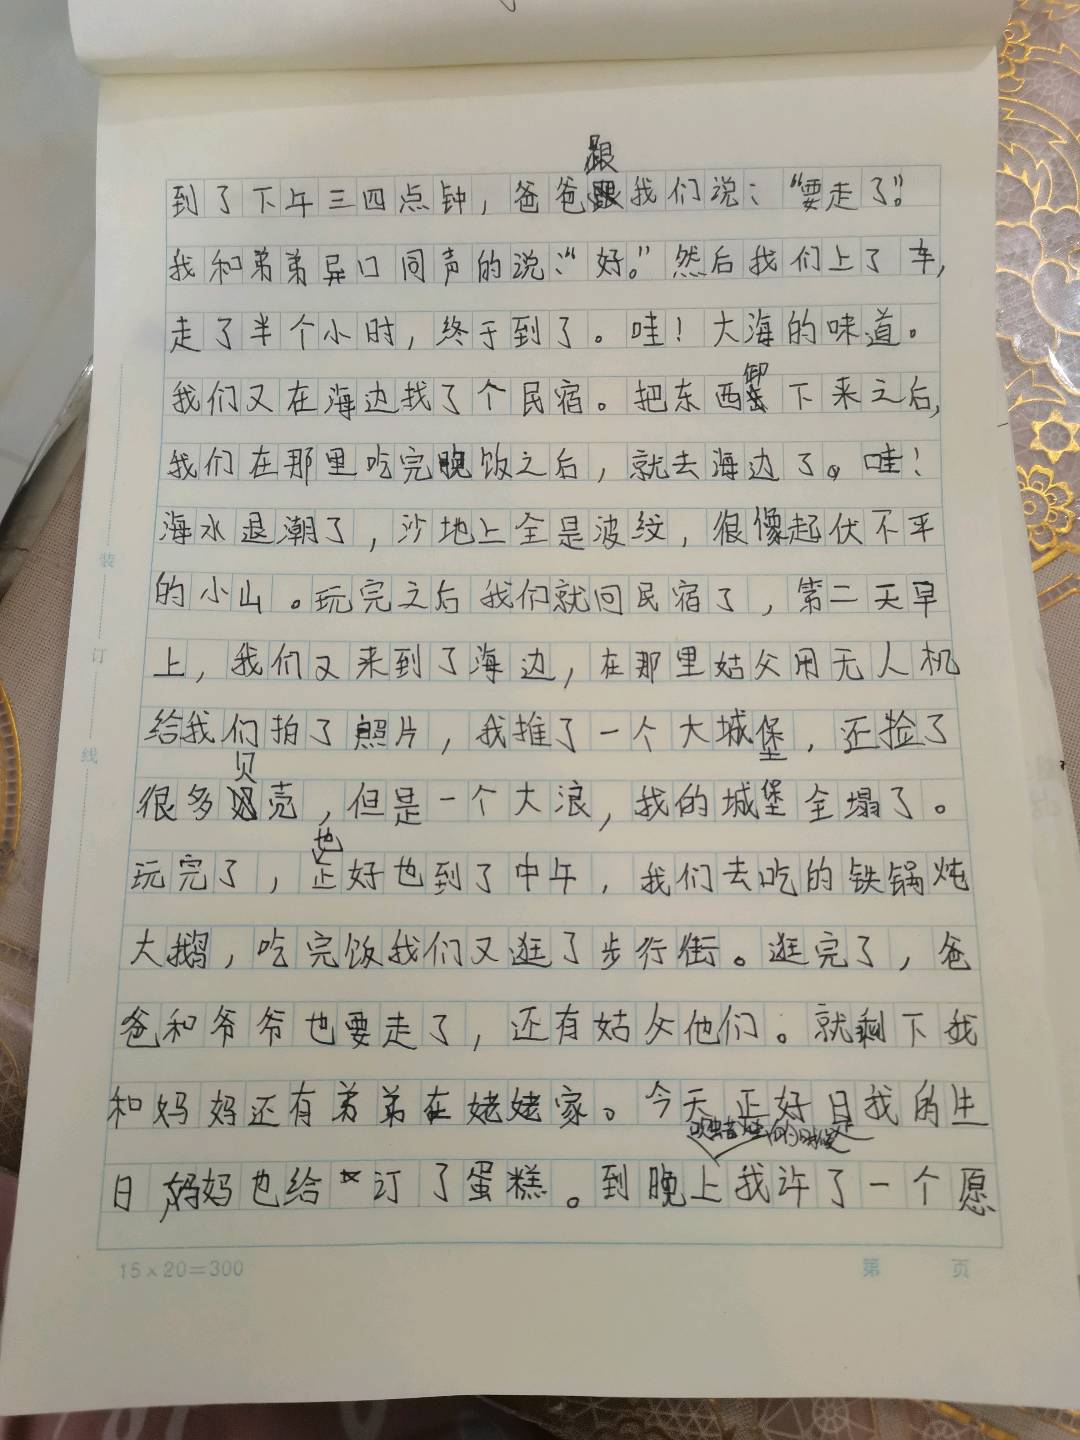 跟
到了下午三四点钟，爸爸我们说：“要走了。”
我和弟弟异口同声的说：“好。”然后我们上了车，
走了半个小时，终于到了。哇！大海的味道。
卸
我们又在海边找了个民宿。把东西下来之后，
我们在那里吃完晚饭之后，就去海边了。哇！
海水退潮了，沙地上全是波纹，很像起伏不平
的小山。玩完之后我们就回民宿了，第二天早
上，我们又来到了海边，在那里姑父用无人机
给我们拍了照片，我推了一个大城堡，还捡了
贝
很多壳，但是一个大浪，我的城堡全塌了。
也
玩完了，正好也到了中午，我们去吃的铁锅炖
大鹅，吃完饭我们又逛了步行街。逛完了，爸
爸和爷爷也要走了，还有姑父他们。就剩下我
和妈妈还有弟弟在姥姥家。今天正好是我的生
吹蜡烛的时候
日妈妈也给订了蛋糕。到晚上我许了一个愿
15×20=300
第 页
装
订
线